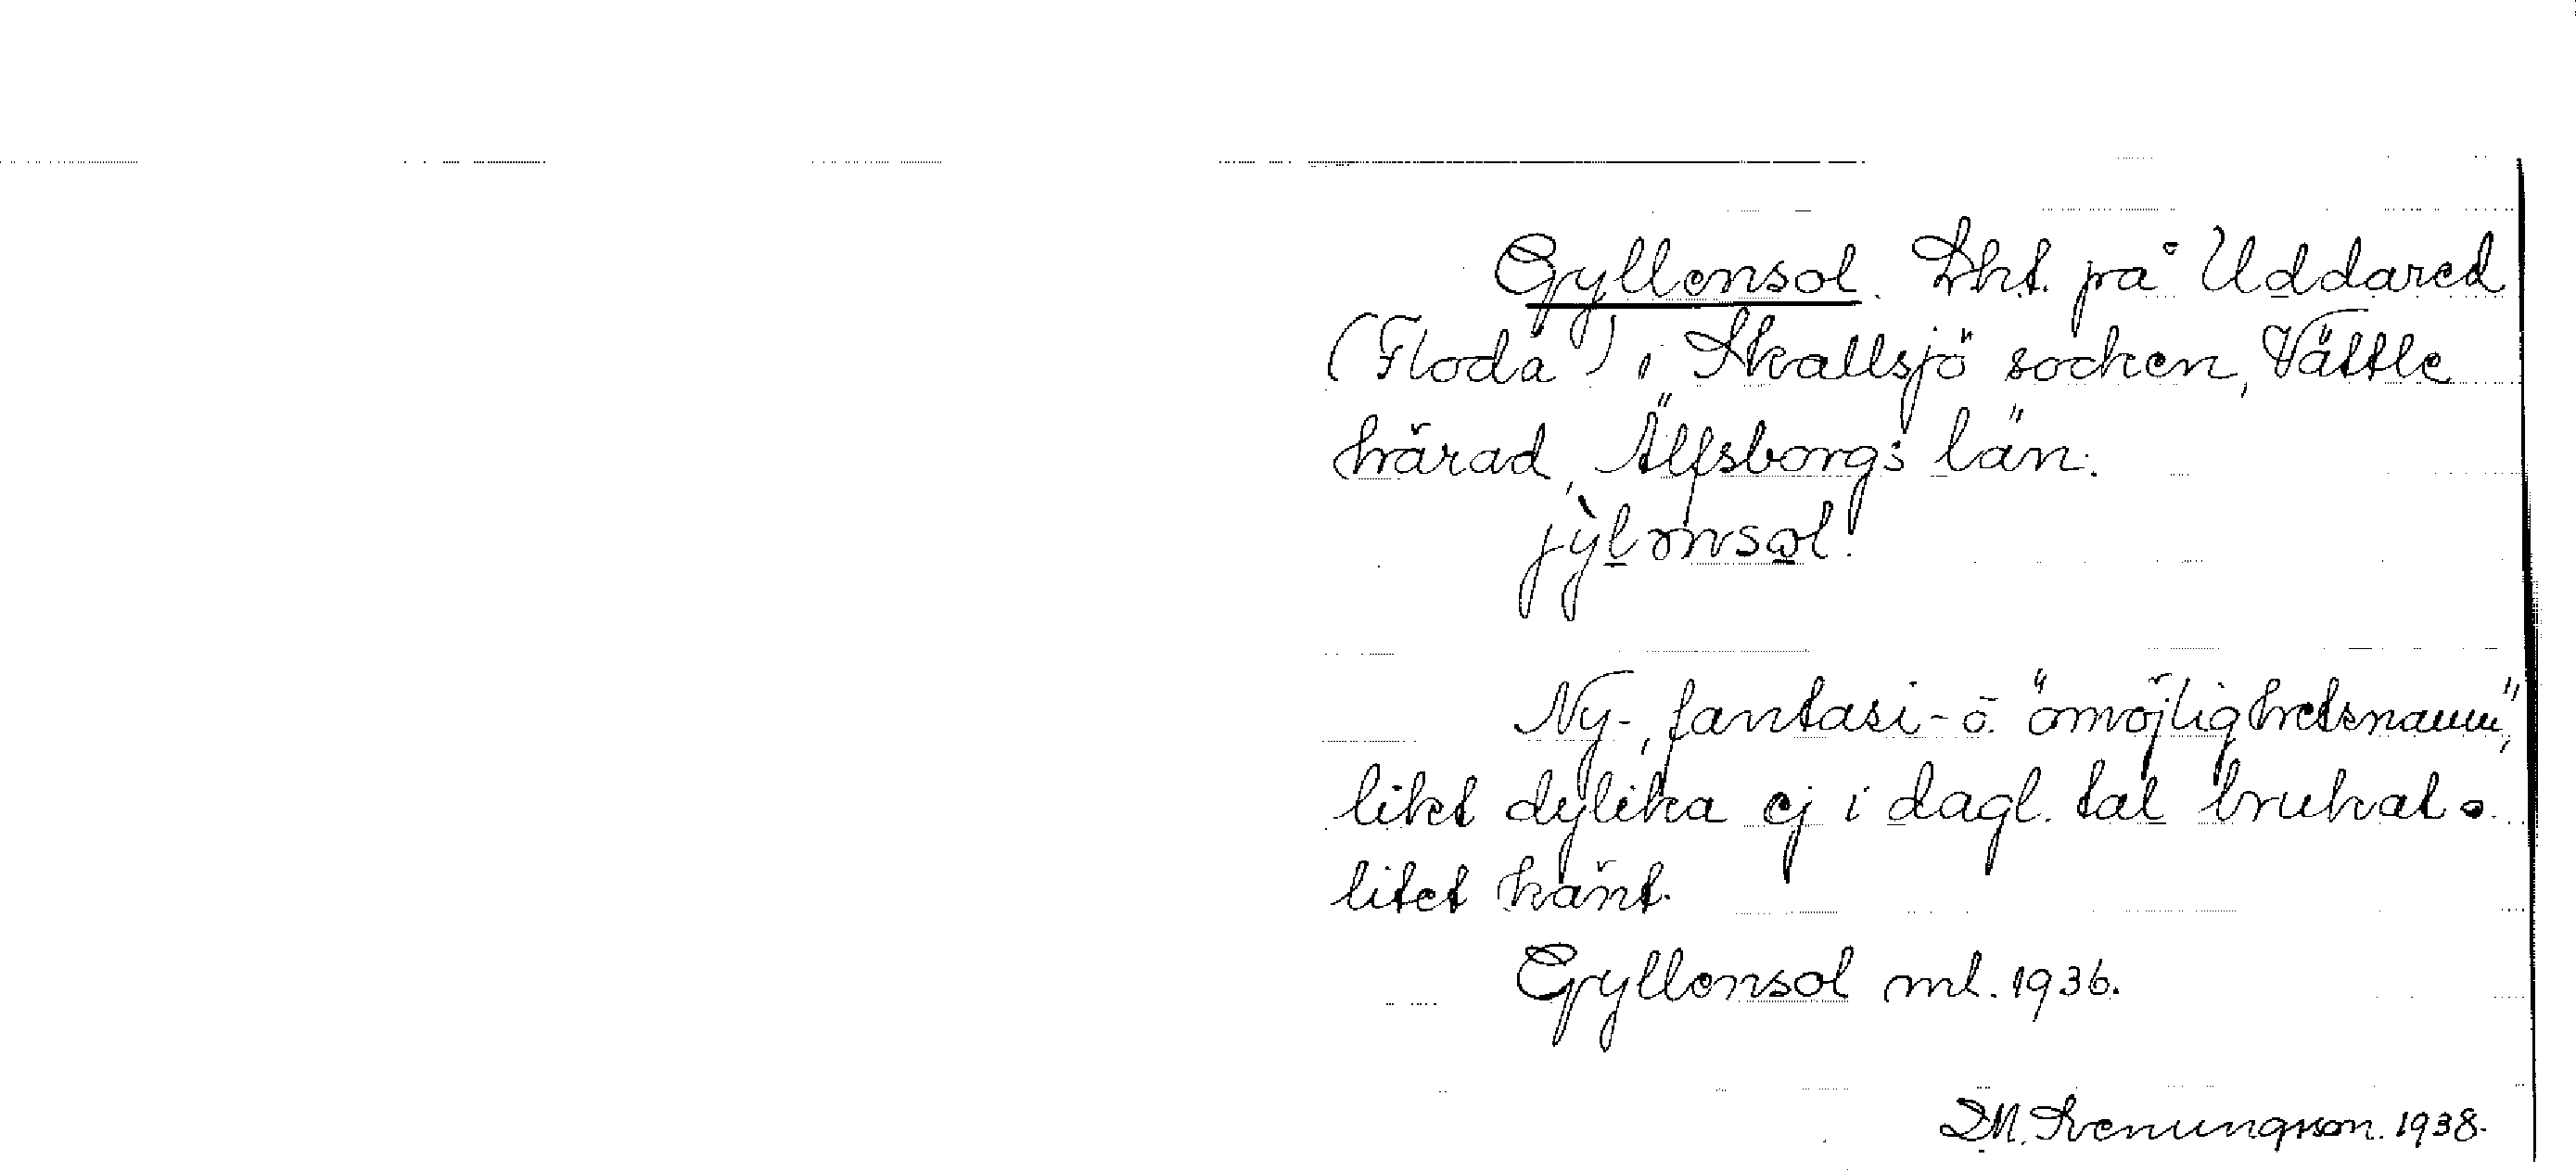 Gyllensol. Lht. på Uddared
(Floda) i Skallsjö socken, Vättle
härad, Älfsborgs län.
jỳlənsol.
Ny-, fantasi- o. "omöjlighetsnamn",
likt dylika ej i dagl. tal brukat o.
litet känt.
Gyllensol ml. 1936.
D.M. Svenungsson. 1938.